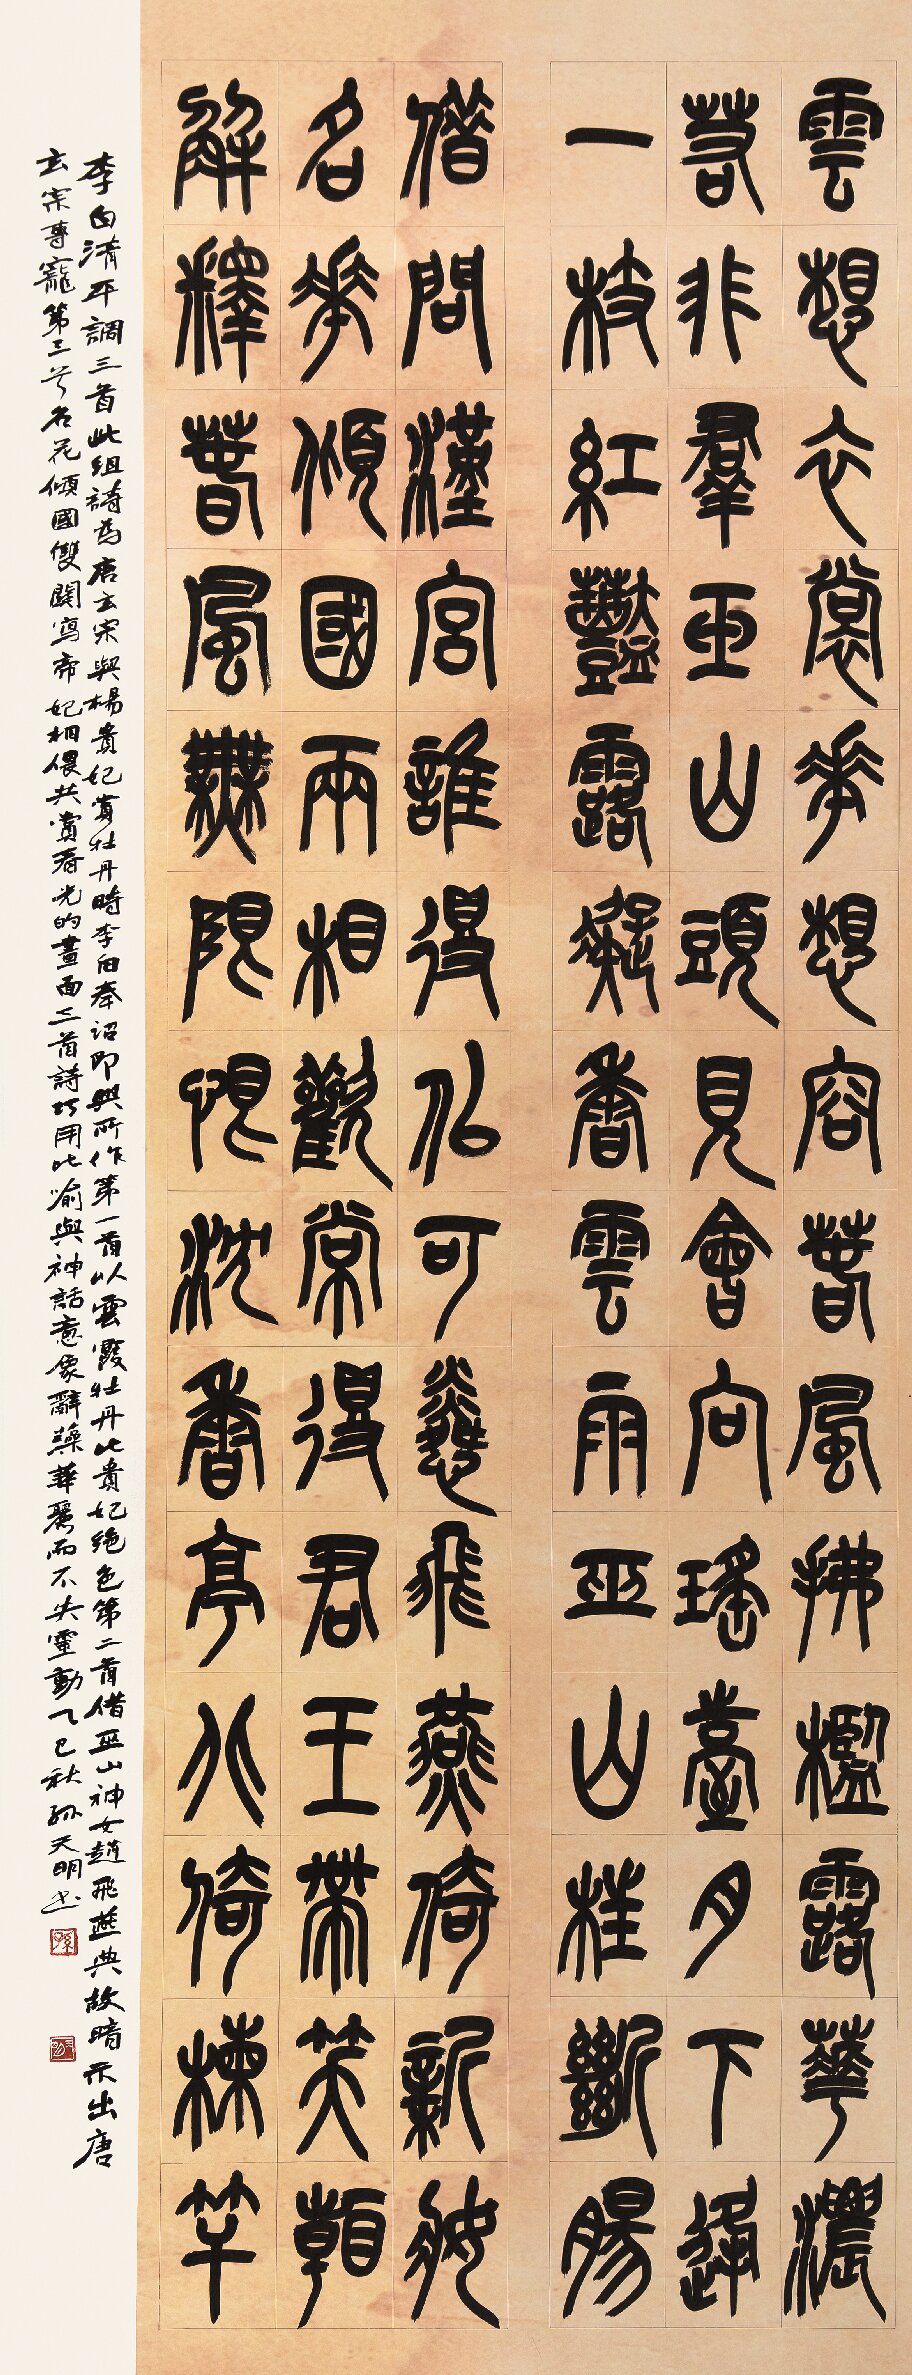 雲想衣裳花想容春風拂檻露華濃
若非羣玉山頭見會向瑤臺月下逢
一枝紅豔露凝香雲雨巫山枉斷腸
借問漢宮誰得似可憐飛燕倚新妝
名花傾國兩相歡常得君王帶笑看
解釋春風無限恨沈香亭北倚楝竿
李白清平調三首此組詩為唐玄宗與楊貴妃賞牡丹時李白奉詔即興所作第一首以雲霞牡丹比貴妃絕色第二首借巫山神女趙飛燕典故暗示出唐
玄宗專寵第三首名花傾國雙關寫帝妃相偎共賞春光的畫面三首詩巧用比喻與神話意象辭藻華麗而不失靈動乙巳秋孫天明書